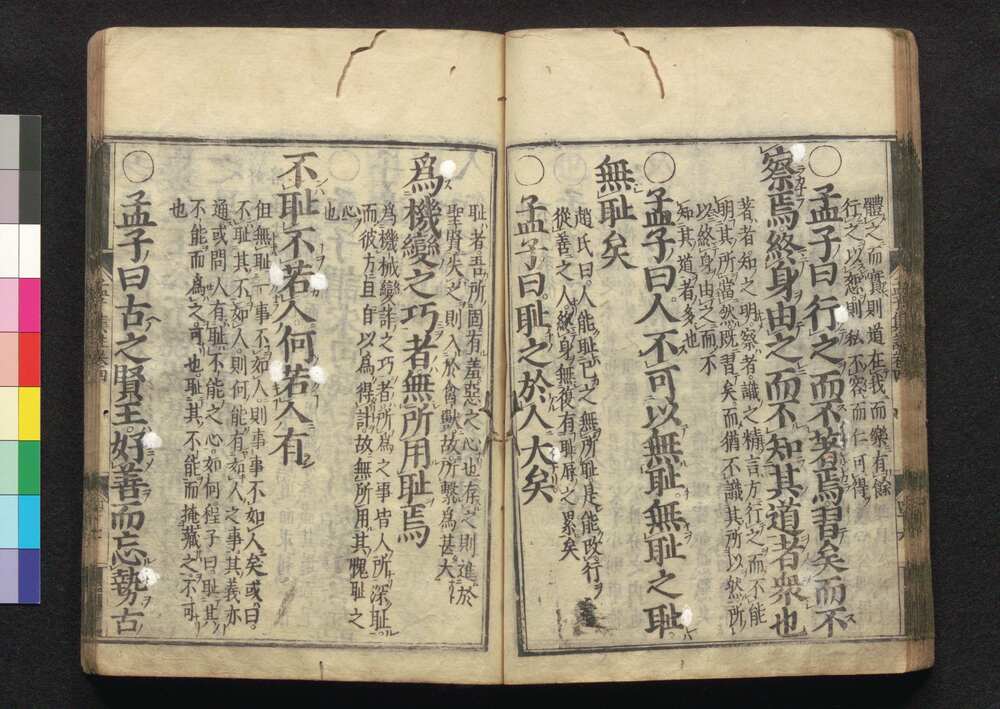 體之而實則道在我而樂有餘
行之以恕則私不容而仁可得
○孟子曰行之而不著焉習矣而不
察焉終身由之而不知其道者衆也
著者知之明察者識之精言方行之而不能
明其所當然既習矣而猶不識其所以然所
以終身由之而不
知其道者多也
○孟子曰人不可以無恥無恥之恥
無恥矣
趙氏曰人能恥己之無所恥是能改行
從善之人終身無復有恥辱之累矣
○孟子曰恥之於人大矣
恥者吾所固有羞惡之心也存之則進於
聖賢失之則入於禽獸故所繫爲甚大
爲機變之巧者無所用恥焉
爲機械變詐之巧者所爲之事皆人所深恥
而彼方且自以爲得計故無所用其愧恥之
心也
不恥不若人何若人有
但無恥一事不如人則事事不如人矣或曰
不恥其不如人則何能有如人之事其義亦
通或問人有恥不能之心如何程子曰恥其
不能而爲之可也恥其不能而掩藏之不可
也
○孟子曰古之賢王好善而忘勢古